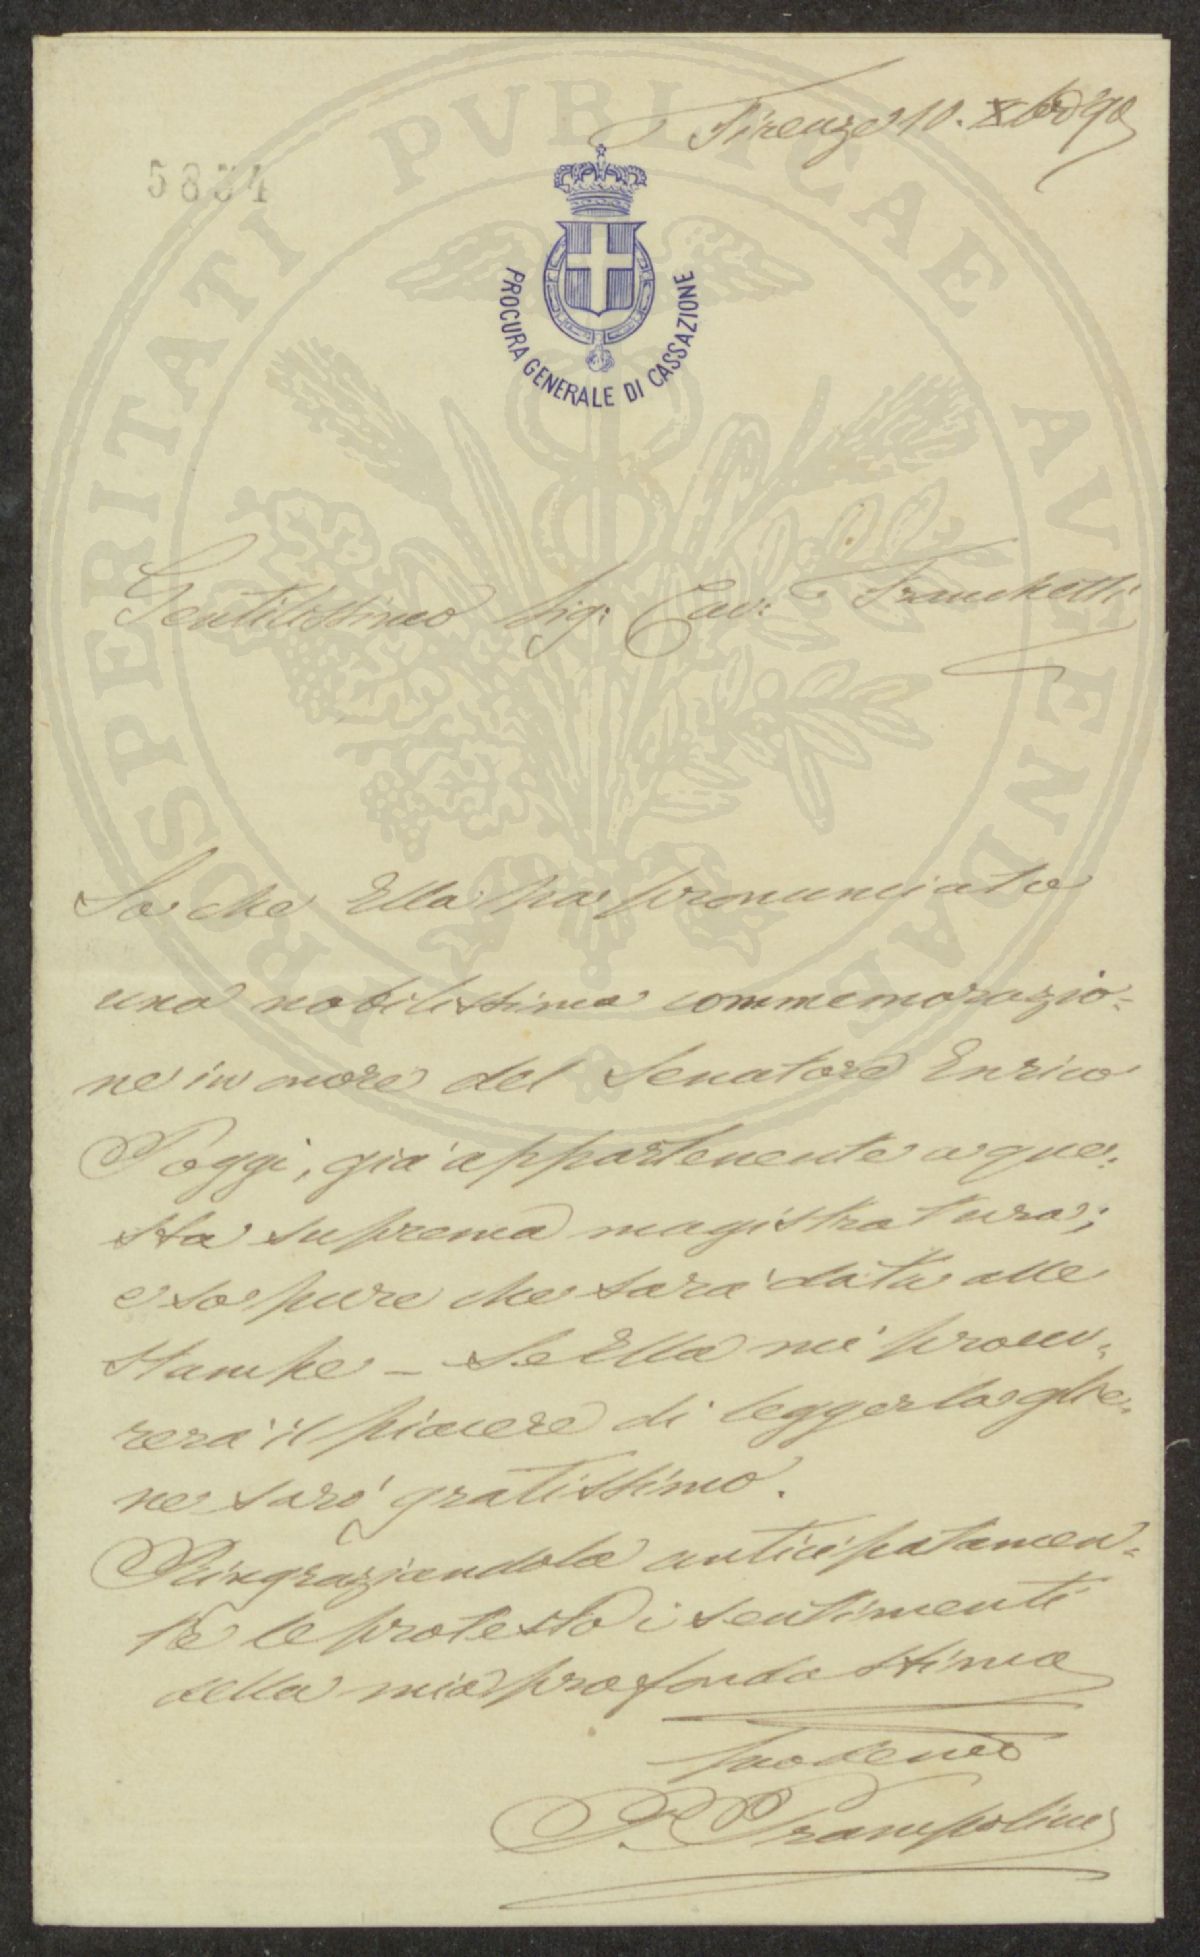 Firenze 10. Xbre 90
5834
PROCURA GENERALE DI CASSAZIONE
PROSPERITATI PVBLICAE AVGENDAE
Gentilissimo Sig: Cav: Franchetti
So che Ella ha pronunciato
una nobilissima commemorazio-
ne in onore del Senatore Enrico
Poggi, già appartenente a que-
sta suprema magistratura;
e so pure che sarà data alle
stampe - Se Ella mi procu-
rerà il piacere di leggerla glie-
ne sarò gratissimo.
Ringraziandola anticipatamen-
te le protesto i sentimenti
della mia profonda stima
Suo devmo
P. Trampolini